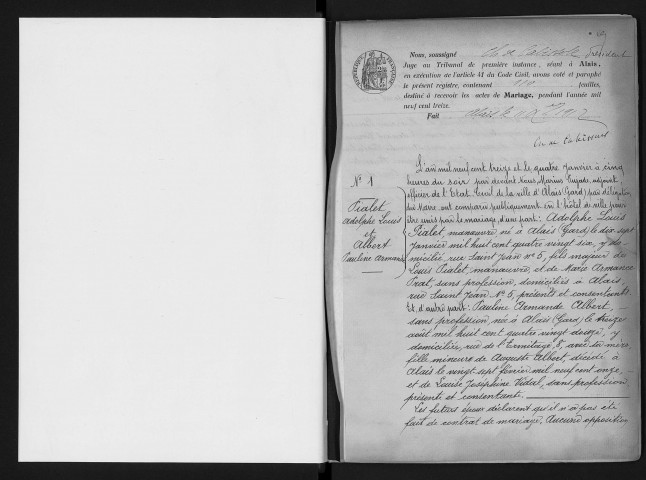 Nous, soussigné
Juge au Tribunal de première instance, séant à Alais,
en exécution de l'article 41 du Code Civil, avons coté et paraphé
le présent registre, contenant feuilles,
destiné à recevoir les actes de Mariage, pendant l'année mil
neuf cent treize.
Fait
RÉPUBLIQUE FRANÇAISE
N° 1
Pialet
Adolphe Louis
et
Albert
Pauline Armande
L'an mil neuf cent treize et le quatre janvier à cinq
heures du soir par devant Nous, Marius adjoint
officier de l'Etat Civil de la ville d'Alais (Gard) par délégation
du Maire ont comparu publiquement en l'hôtel de ville pour
être unis par le mariage, d'une part: Adolphe Louis
Pialet, manœuvre, né à Alais (Gard) le dix sept
janvier mil huit cent quatre vingt six, y do-
micilié rue Saint Jean n° 5, fils majeur de
Louis Pialet, manœuvre, et de Marie Armance
Prat, sans profession, domiciliés à Alais,
rue Saint Jean N° 5, présents et consentants.
Et d'autre part: Pauline Armande Albert,
sans profession, née à Alais (Gard) le treize
août mil huit cent quatre vingt douze, y
domiciliée, rue de l'Ermitage 8, avec sa mère,
fille mineure de Auguste Albert, décédé à
Alais le vingt sept février mil neuf cent onze,
et de Louise Joséphine Vidal, sans profession
présente et consentante.
Les futurs époux déclarent qu'il n'a pas été
fait de contrat de mariage. Aucune opposition